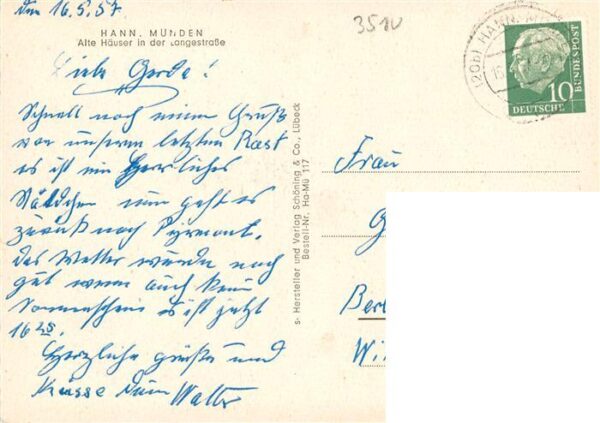 den 16.5.57
HANN. MÜNDEN
Alte Häuser in der Langestraße
Liebe Gerda!
Schnell noch einen Gruß
vor unserer letzten Rast
es ist ein herrliches
Städtchen nun geht es
zurück nach Pyrmont.
das Wetter wurde noch
gut wenn auch kein
Sonnenschein es ist jetzt
16 25.
Herzliche Grüße und
Küsse Dein Walter
s- Hersteller und Verlag Schöning & Co., Lübeck
Bestell-Nr. Ha-Mü 117
3510
(20b) HANN.
10
DEUTSCHE
BUNDESPOST
Frau
G
Ber
Wi